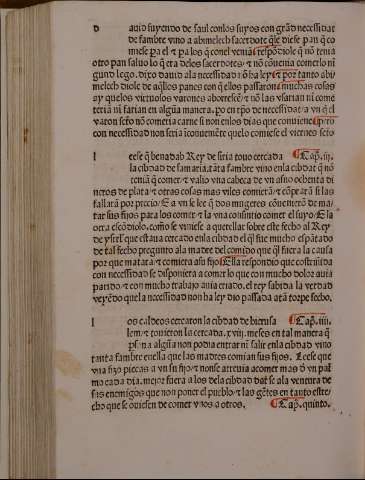 d auid fuyendo de saul conlos suyos con grãd necessidat
de fambre vino a abimelech sacerdote q̃le diese pan q̃ co
miese pa el & pa los q̃ conel veniã respõdiole q̃ nõ teniã
otro pan saluo lo q̃ era delos sacerdotes / & nõ conuenia comerlo ni
gund lego. dixo dauid ala necessidad nõ ha ley & por tanto abi
melech diole de aq̃llos panes con q̃ ellos passaron muchas cosas
ay quelos virtuosos varones aborrescẽ / & nõ las vsarian ni come
teriã ni farian en algũa manera. po en tpõ de necessidat
varon sesto nõ cometia carne si non enlos dias que conuiene pero
con necessidad non seria inconueniẽte quelo comiese el viernes sesto
l eese q̃ benadab Rey de siria touo cercada Cap̃. iij.
la cibdad de samaria. & tãta fambre vino enla cibdat q̃ nõ
teniã q̃ comer / & valio vna cabeça de vn asno ochenta di
neros de plata & otras cosas mas viles comierã / & cõprarã si las
fallarã por precio / E a vn se lee q̃ dos mugeres cõuenierõ de ma
tar sus fijos para los comer / & la vna consintio comer el suyo / E la
otra escõdiolo. como se viniese a querellar sobre este fecho al Rey
de ysrl que estaua cercado enla cibdad el q̃l fue mucho espãtado
de tal fecho pregunto ala madre del comido que q̃l fuera la causa
por que matara / & comiera a su fijo Ella respondio que costreñida
con necessidad se dispusiera a comer lo que con mucho dolor auia
parido / & con mucho trabajo auia criado. el rey sabida la verdad
veyẽdo quela necessidad non ha ley dio passada atã torpe fecho.
l os caldeos cercaron la cibdad de hierusa Cap̃. iiij.
lem. & touieron la cercada. xviij. meses en tal manera q̃
psona algũa non podia entrar ni salir enla cibdad vino
tanta fambre enella que las madres comian sus fijos. Leese que
vna fizo pieças a vn su fijo / & nonse atreuia acomer mas d̃ vn pal
mo cada dia. mejor fuera a los dela cibdad dat se ala ventura de
sus enemigos que non poner el pueblo / & las gẽtes en tanto estre
cho que se ouiesen de comer vnos a otros. Cap̃. quinto.